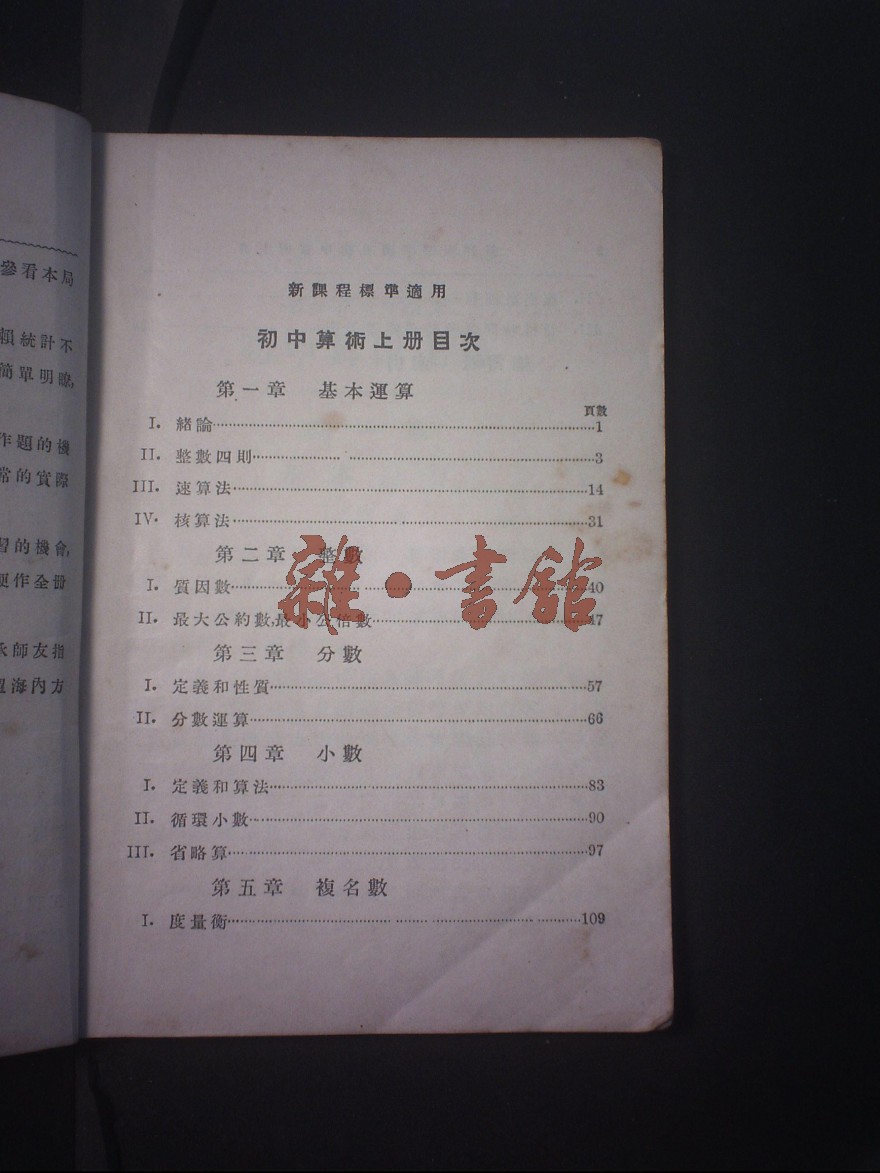 參看本局
賴統計不
簡單明瞭,
作題的機
常的實際
習的機會,
便作全册
師友指
海內方
新課程標準適用
初中算術上册目次
第一章 基本運算
頁數
I. 緒論……1
II. 整數四則……3
III. 速算法……14
IV. 核算法……31
第二章 整數
I. 質因數……40
II. 最大公約數,最小公倍數……47
第三章 分數
I. 定義和性質……57
II. 分數運算……66
第四章 小數
I. 定義和算法……83
II. 循環小數……90
III. 省略算……97
第五章 複名數
I. 度量衡……109
雜·書館